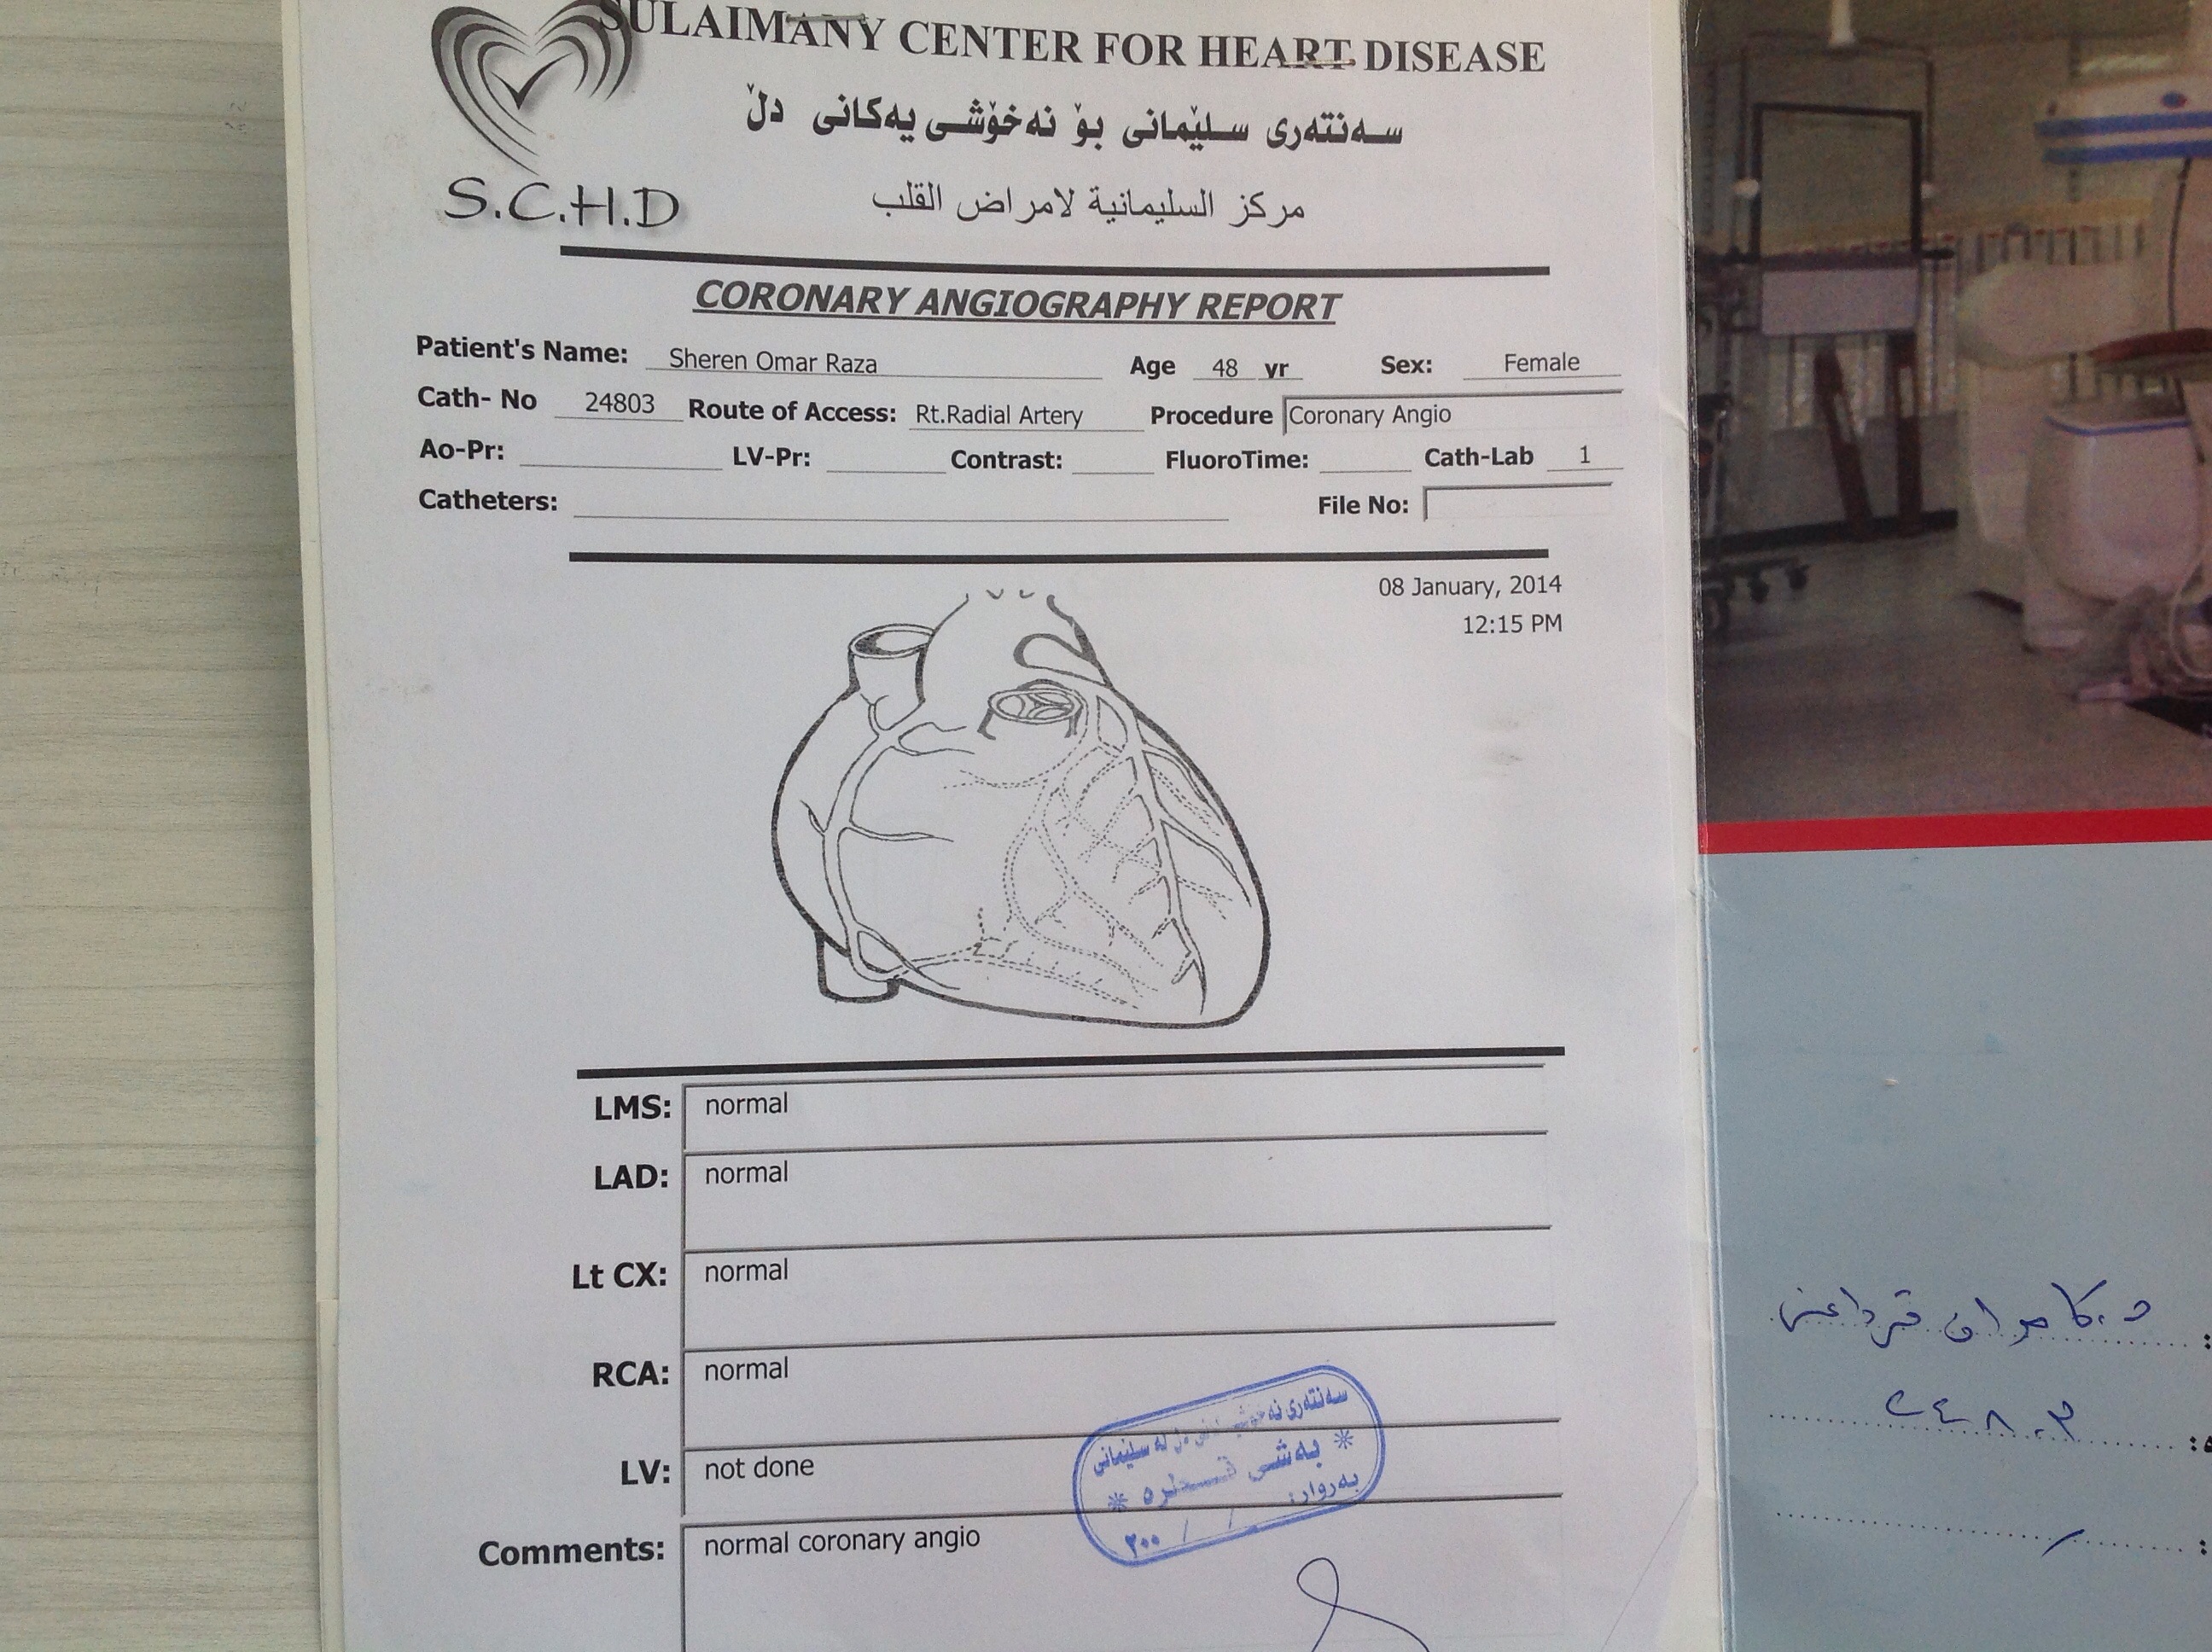 SULAIMANY CENTER FOR HEART DISEASE
سەنتەری سلێمانی بۆ نەخۆشی یەکانی دڵ
S.C.H.D
مركز السليمانية لامراض القلب
CORONARY ANGIOGRAPHY REPORT
Patient's Name: Sheren Omar Raza Age 48 yr Sex: Female
Cath- No 24803 Route of Access: Rt.Radial Artery Procedure Coronary Angio
Ao-Pr: LV-Pr: Contrast: FluoroTime: Cath-Lab 1
Catheters: File No:
08 January, 2014
12:15 PM
LMS: normal
LAD: normal
Lt CX: normal
RCA: normal
LV: not done
Comments: normal coronary angio
سەنتەری نەخۆشی دل لە سلێمانی
* بەشی قسطرە *
بەروار: / / ٢٠٠
د. کامران قرداغی
٢٤٨٠٣